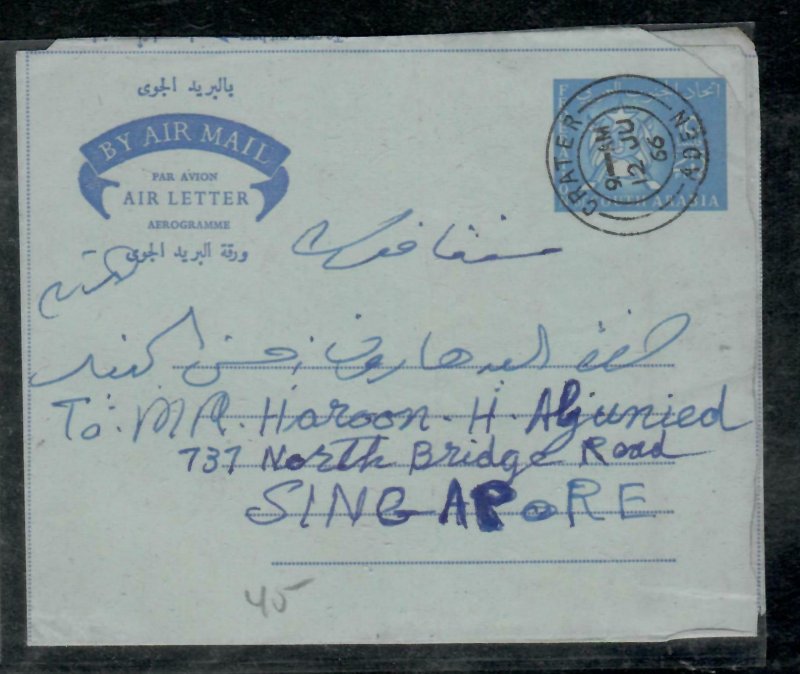 بالبريد الجوى
BY AIR MAIL
PAR AVION
AIR LETTER
AEROGRAMME
ورقة البريد الجوى
اتحاد الجنوب العربي
SOUTH ARABIA
CRATER
ADEN
9-AM
12 JU
66
سنقافورة
المكرم
حضرة السيد هارون بن حسن الجنيد
To: MR. Haroon. H. Aljunied
737 North Bridge Road
SINGAPORE
45